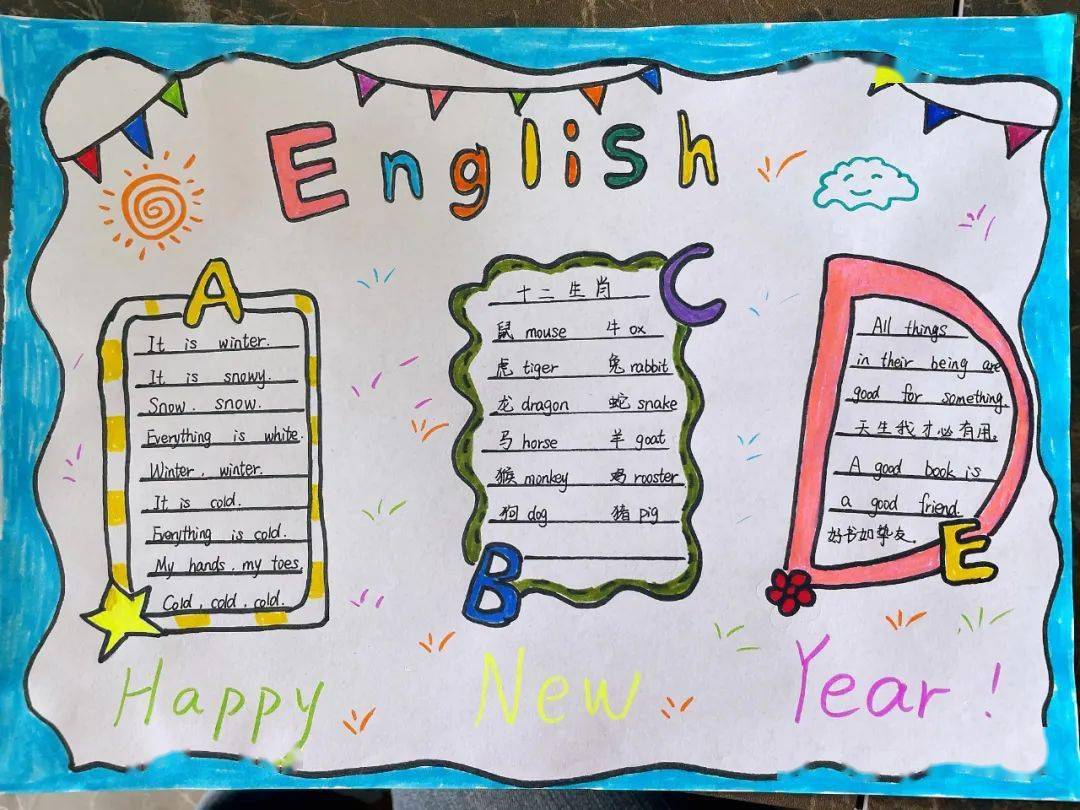 English
A
It is winter.
It is snowy.
Snow, snow.
Everything is white.
Winter, winter.
It is cold.
Everything is cold.
My hands, my toes,
Cold, cold, cold.
C
十二生肖
鼠 mouse 牛 ox
虎 tiger 兔 rabbit
龙 dragon 蛇 snake
马 horse 羊 goat
猴 monkey 鸡 rooster
狗 dog 猪 pig
B
D
All things
in their being are
good for something.
天生我才必有用。
A good book is
a good friend.
好书如挚友。
E
Happy New Year!